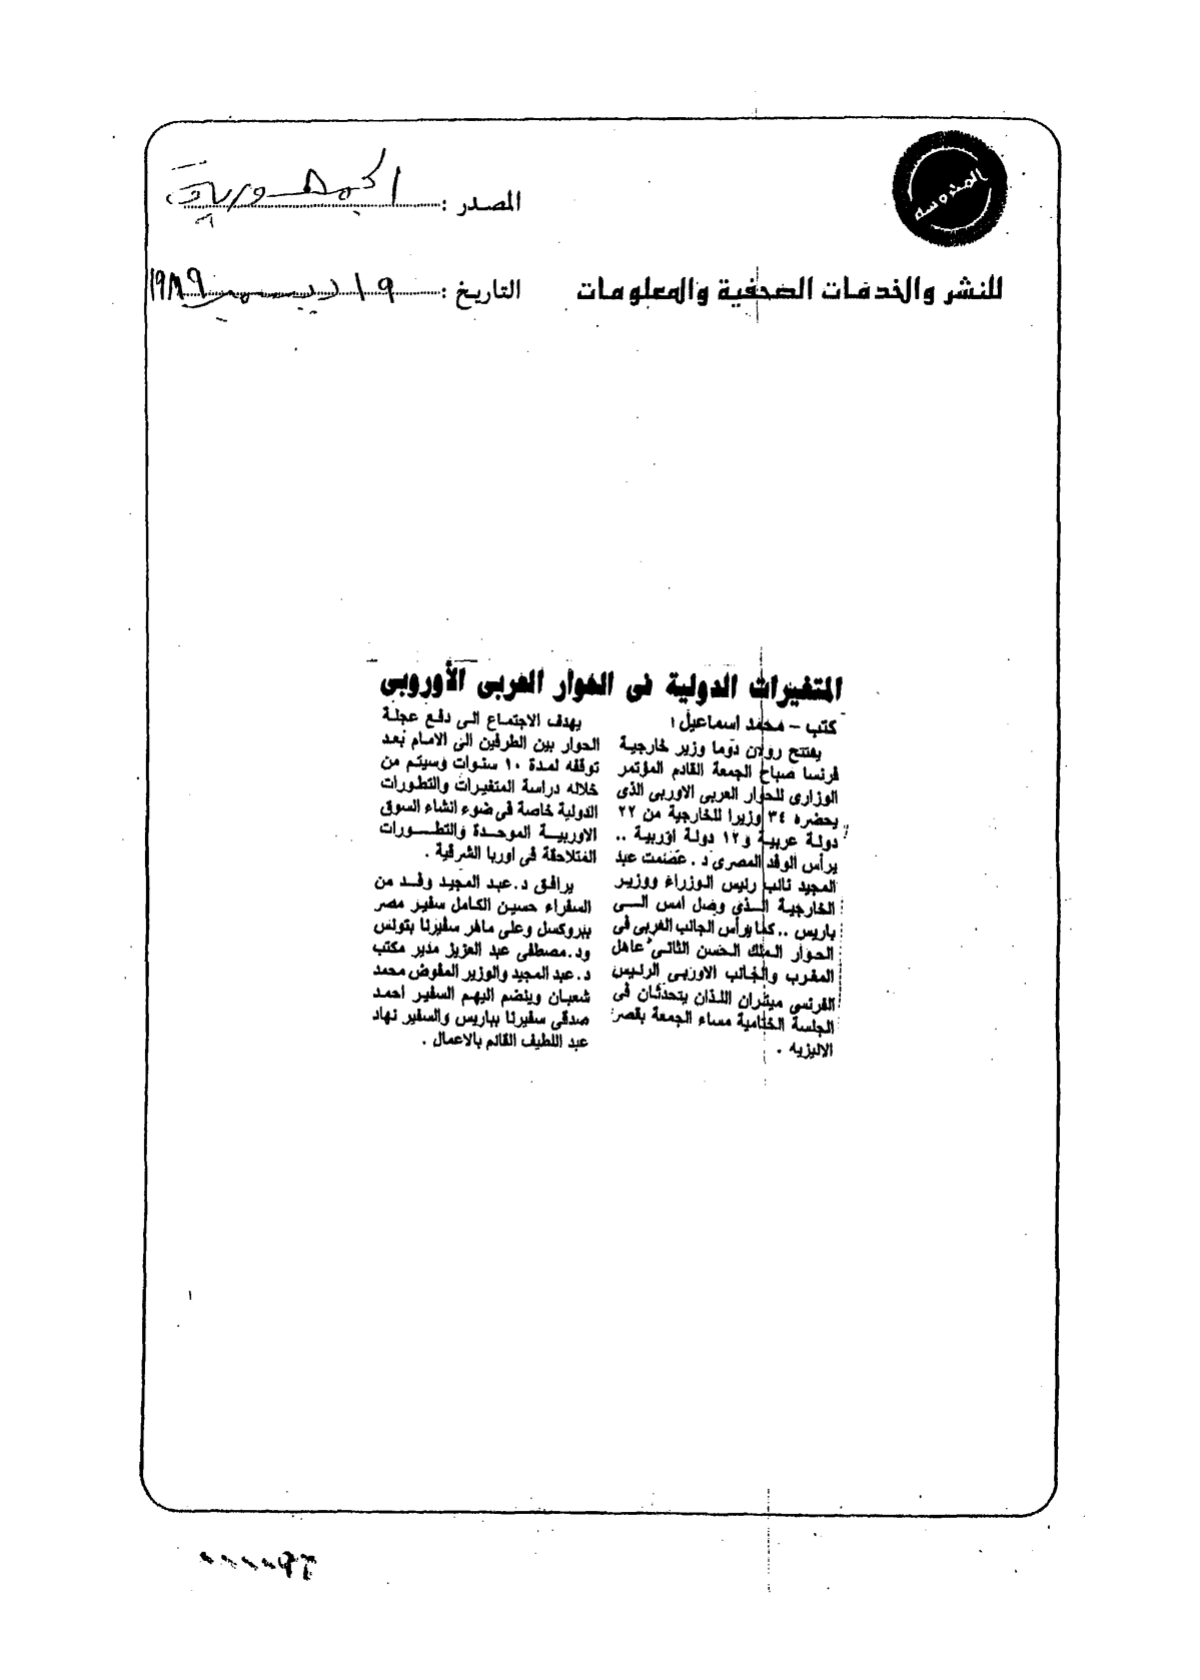 المحروسة
المصدر : الجمهورية
للنشر والخدمات الصحفية والمعلومات
التاريخ : ١٩ ديسمبر ١٩٨٩
المتغيرات الدولية فى الحوار العربى الأوروبى
كتب - محمد اسماعيل :
يفتتح رولان دوما وزير خارجية
فرنسا صباح الجمعة القادم المؤتمر
الوزارى للحوار العربى الاوربى الذى
يحضره ٣٤ وزيرا للخارجية من ٢٢
دولة عربية و١٢ دولة اوربية ..
يرأس الوفد المصرى د . عصمت عبد
المجيد نائب رئيس الوزراء ووزير
الخارجية الذى وصل امس الى
باريس .. كما يرأس الجانب العربى فى
الحوار الملك الحسن الثانى عاهل
المغرب والجانب الاوربى الرئيس
الفرنسى ميتران اللذان يتحدثان فى
الجلسة الختامية مساء الجمعة بقصر
الاليزيه .
يهدف الاجتماع الى دفع عجلة
الحوار بين الطرفين الى الامام بعد
توقفه لمدة ١٠ سنوات وسيتم من
خلاله دراسة المتغيرات والتطورات
الدولية خاصة فى ضوء انشاء السوق
الاوربية الموحدة والتطورات
المتلاحقة فى اوربا الشرقية .
يرافق د.عبد المجيد وفد من
السفراء حسين الكامل سفير مصر
ببروكسل وعلى ماهر سفيرنا بتونس
ود.مصطفى عبد العزيز مدير مكتب
د.عبد المجيد والوزير المفوض محمد
شعبان وينضم اليهم السفير احمد
صدقى سفيرنا بباريس والسفير نهاد
عبد اللطيف القائم بالاعمال .